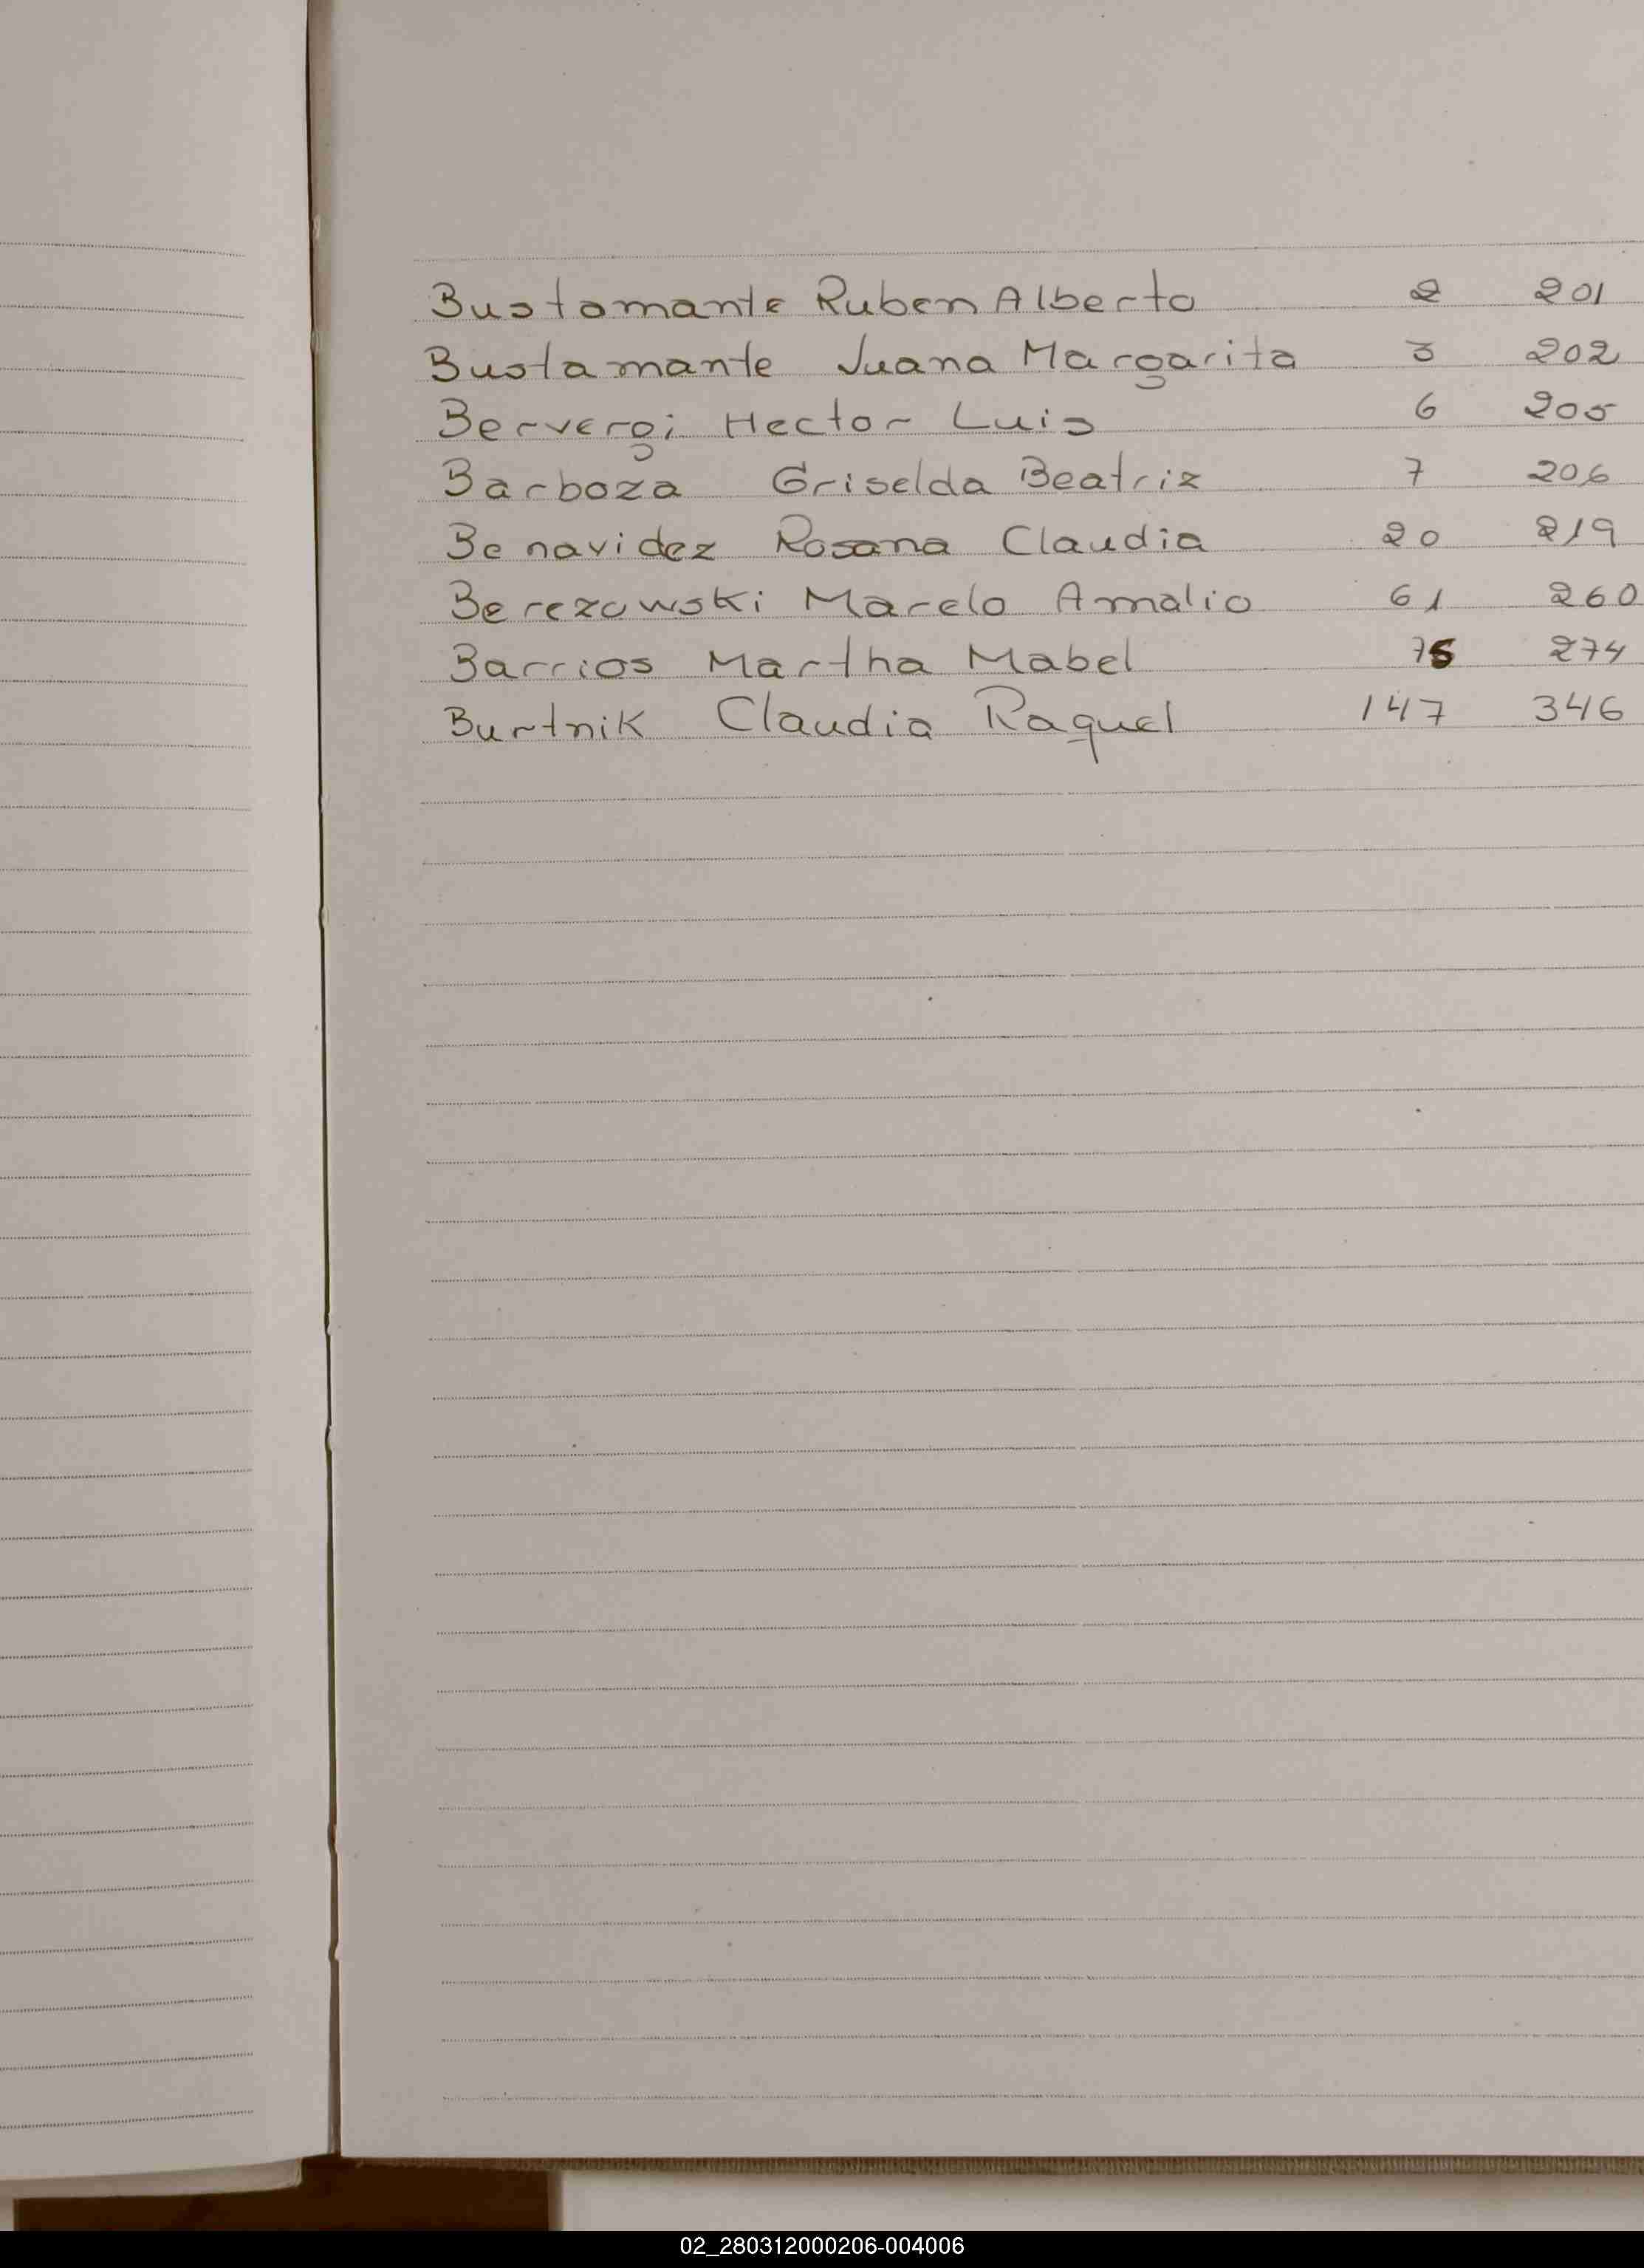 Bustamante Ruben Alberto 2 201
Bustamante Juana Margarita 3 202
Bervergi Hector Luis 6 205
Barboza Griselda Beatriz 7 206
Benavidez Rosana Claudia 20 219
Berezowski Marcelo Amalio 61 260
Barrios Martha Mabel 75 274
Burtnik Claudia Raquel 147 346
02_280312000206-004006